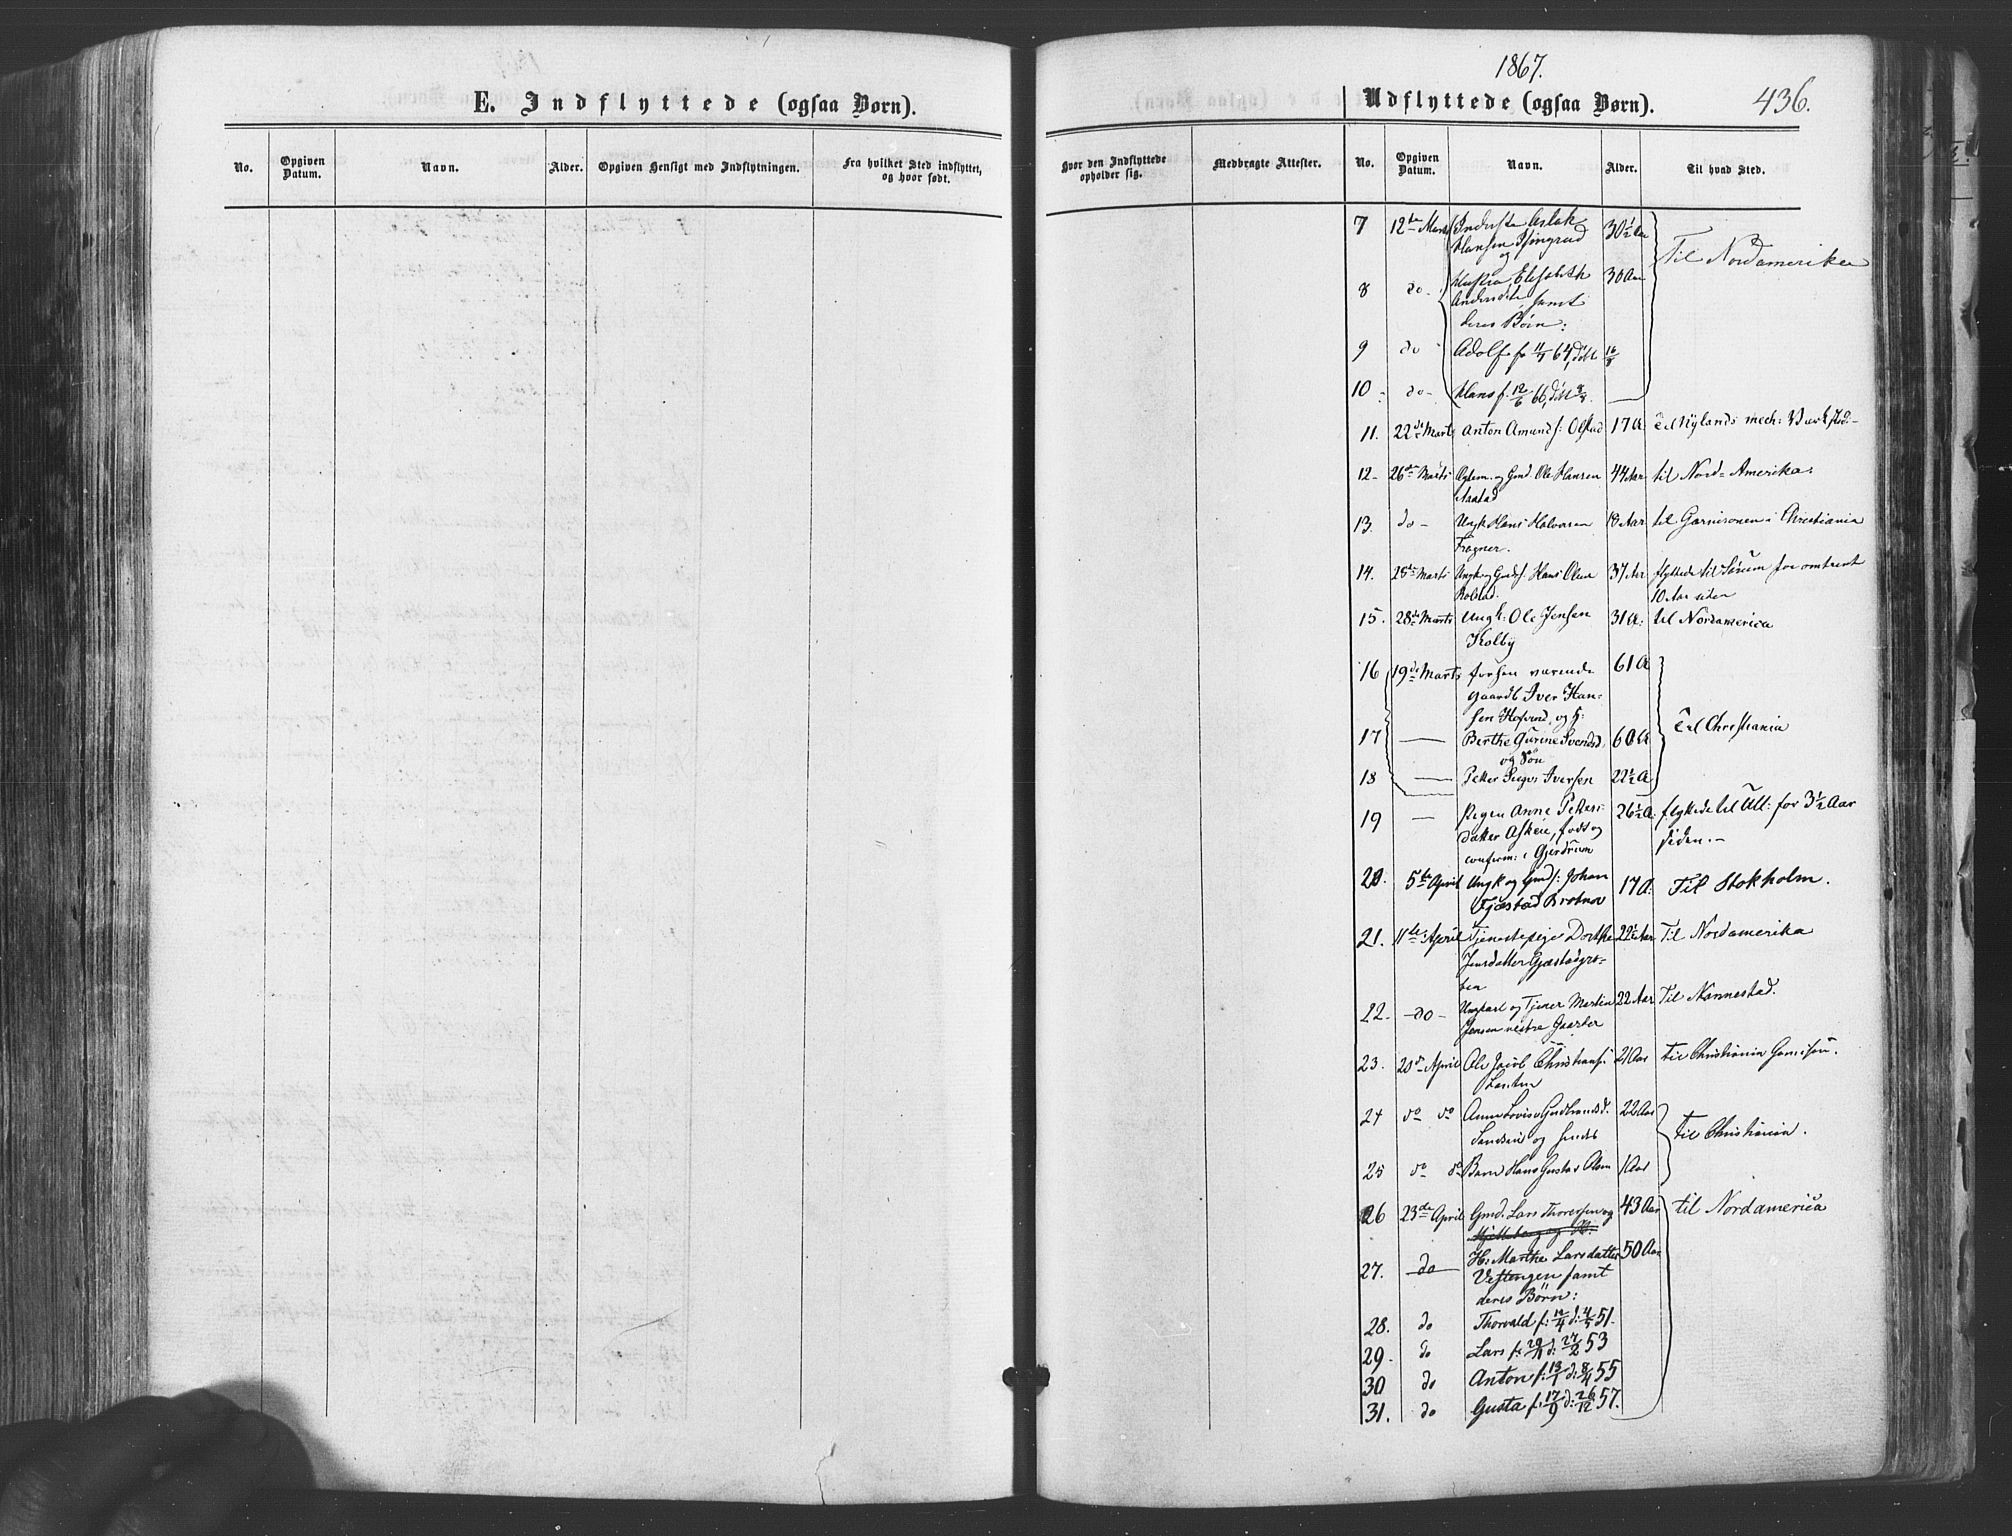 1867.
436.
E. Indflyttede (ogsaa Børn).
No.
Opgiven Datum.
Navn.
Alder.
Opgiven Hensigt med Indflytningen.
Fra hvilket Sted indflyttet, og hvor født.
Hvor den Indflyttede opholder sig.
Medbragte Attester.
Udflyttede (ogsaa Børn).
No.
Opgiven Datum.
Navn.
Alder.
Til hvad Sted.
7 12te Marts Inderste Aslak 30½ Aar
Hansen
og
Til Nordamerika
8 do - Hustru Elisabeth 30 Aar
Andersdtr samt
deres Børn:
9 do Adolf f. 11/7 64, døbt 16/8
10 - do - Hans f. 12/6 66, døbt
11. 22de Marts Anton Amunds: Olstad 17 A Til Nylands mech: Værksted -
12 - 26de Marts og Gmd. Ole Hansen 44 Aar til Nord-Amerika.
13. do - Ungk Hans Halvorsen 18 Aar til Garnisonen i Christiania
Fragner.
14. 28de Marts Ungk og Gmds: Hans Olsen 37 Aar flyttede til Sørum for omtrent
Rolstad. 10 Aar siden
15. 28de Marts Ungk: Ole Jensen 31 A: til Nordamerica
Kolby
16 19de Marts forhen værende 61 A
Gaardb Iver Han-
sen Hofvind, og H:
17 — Berthe Gurine Svendsd. 60 A Til Christiania
og Søn
18 — Petter Iversen 22½ A
19 — Pigen Anne Peters: 26½ A: flyttede til Ull: for 3½ Aar
datter Askeie, født og siden. -
confirm: i Gjerdrum
20. 5te April Ungk og Gmds: Johan 17 A. Til Stokholm.
Gjæstad Brotnov
21. 11te April Tjenestepige Dorthe 22½ Aar Til Nordamerika
Jensdatter Gjæstadgro-
ben
22. - do - Ungkarl og Tjener Martin 22 Aar Til Nannestad.
Jensen vestre Gaarder
23. 20de April Ole Jacob Christians: 21 Aar til Christiania Garnison.
24 do do Anne Lovise Gudbrandsd. 22 Aar
og hendes til Christiania.
25 do do Barn Hans Gustav Olsen 1 Aar
26 23de April Gmd. Lars Thoresen og 43 Aar til Nordamerica
27. do H: Marthe Larsdatter 50 Aar
Vestengen samt
deres Børn:
28. do Thorvald f: d: 51.
29. do Lars f: d: 27/2 53
30 do Anton f: 13/1 d: 8/4 55
31. do Gusta f: 17/9 d: 26/12 57.